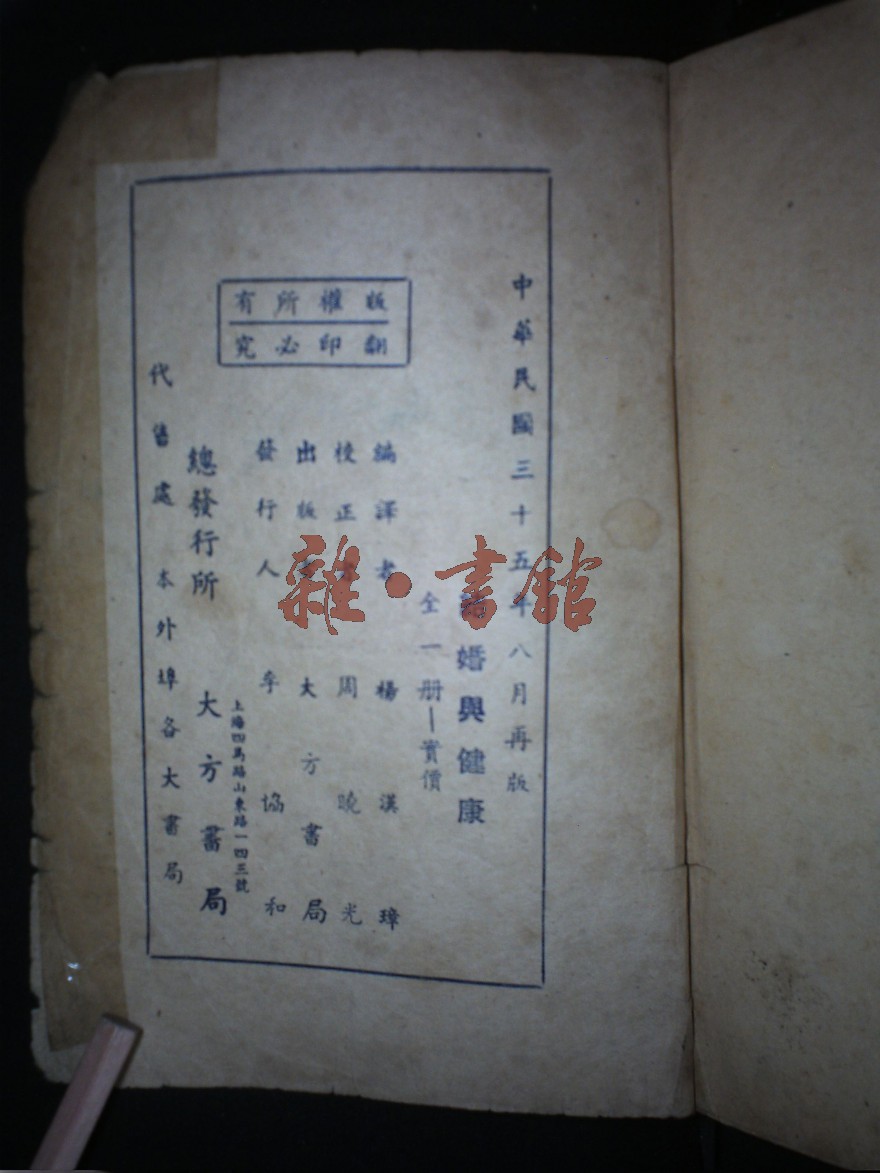 中華民國三十五年八月再版
婚與健康
全一册—實價
編譯者 楊漢璋
校正者 周曉光
出版者 大方書局
發行人 李協和
版權所有
翻印必究
總發行所 大方書局
上海四馬路山東路一四三號
代售處 本外埠各大書局
雜·書館